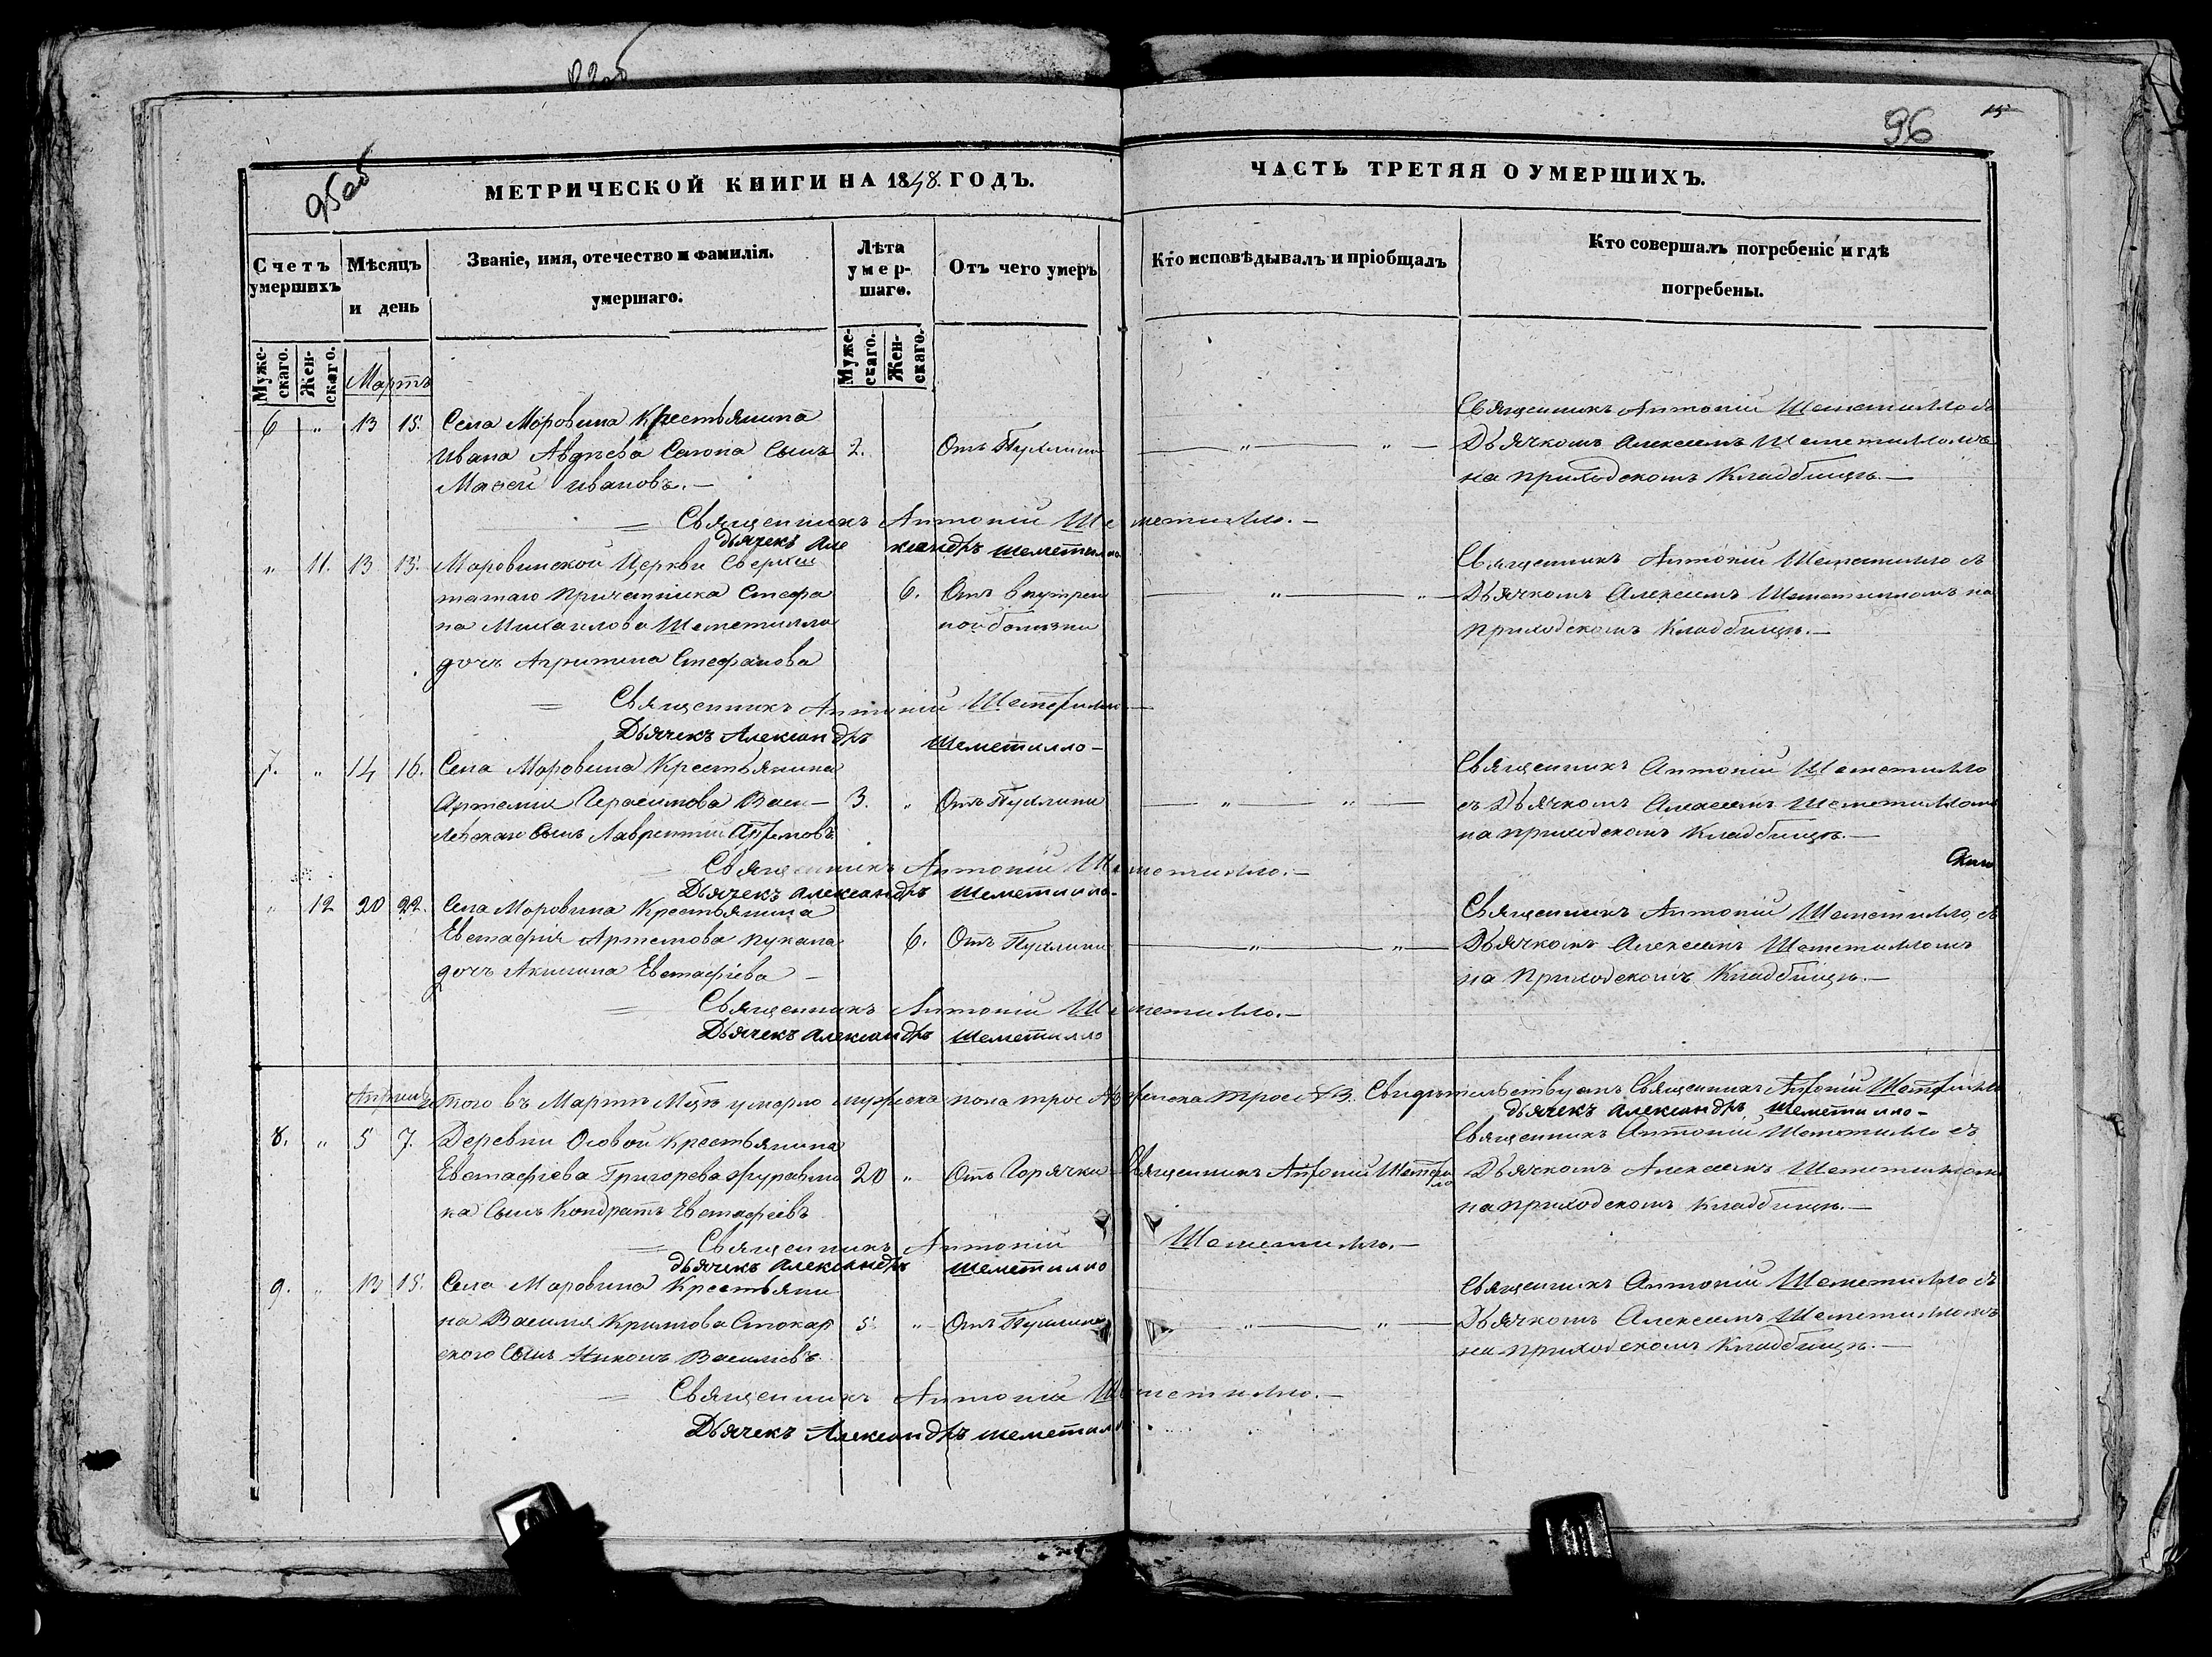 95об
96
15
МЕТРИЧЕСКОЙ КНИГИ НА 1848. ГОДЪ.
ЧАСТЬ ТРЕТЯЯ О УМЕРШИХЪ.
Счетъ умершихъ
Мѣсяцъ и день
Званіе, имя, отечество и фамилія. умершаго.
Лѣта умер-шаго.
Отъ чего умеръ
Кто исповѣдывалъ и пріобщалъ
Кто совершалъ погребеніе и гдѣ погребены.
Муже-скаго.
Жен-скаго.
Муже-скаго.
Жен-скаго.
Мартъ
6 „ 13 15. Села Моровина Крестьянина
Ивана Авдѣева Сынъ 2. Отъ Пухлини
Матѳей Ивановъ.—
Священникъ Антоній Шеметилло съ
Дьячкомъ Алексѣемъ Шеметилломъ
на приходскомъ Кладбищѣ.—
Священникъ Антоній Шеметилло.—
Дьячекъ Александръ Шеметилло
„ 11. 13 15. Моровинской Церкви Сверхш
татнаго Причетника Стефа 6. Отъ внутрен
на Михаилова Шеметилла ной болѣзни
дочъ Агрипина Стефанова
Священникъ Антоній Шеметилло съ
Дьячкомъ Алексѣемъ Шеметилломъ на
приходскомъ Кладбищѣ.—
Священникъ Антоній Шеметилло—
Дьячекъ Александръ Шеметилло—
7. „ 14 16. Села Моровина Крестьянина
Артемія Герасимова Васи— 3. „ Отъ Пухлини
левскаго Сынъ Лаврентій Артемовъ
Священникъ Антоній Шеметилло
съ Дьячкомъ Алексѣемъ Шеметилломъ
на приходскомъ Кладбищѣ.—
Священникъ Антоній Шеметилло.—
Дьячекъ Александръ Шеметилло—
„ 12 20 22. Села Моровина Крестьянина
Евстафія Артемова Лукаша 6. Отъ Пухлини
дочъ Акилина Евстафіева —
Священникъ Антоній Шеметилло, съ
Дьячкомъ Алексѣемъ Шеметилломъ
на Приходскомъ Кладбищѣ.—
Священникъ Антоній Шеметилло.—
Дьячекъ Александръ Шеметилло
Апрель
Итого въ Мартѣ Мцѣ умерло мужеска пола трое женска трое Свидѣтельствуемъ Священникъ Антоній Шеметилло
Дьячекъ Александръ Шеметилло—
8. „ 5 7. Деревни Осовой Крестьянина
Евстафіева Григорева Журавли 20 „ Отъ Горячки Священникъ Антоній Шеметилло
ка Сынъ Кондратъ Евстафіевъ
Священникъ Антоній Шеметилло съ
Дьячкомъ Алексѣемъ Шеметилломъ
на приходскомъ Кладбищѣ.—
Священникъ Антоній Шеметилло.—
Дьячекъ Александръ Шеметилло
9. „ 13 15. Села Моровина Крестьяни
на Василія Климова Стокар 5 „ Отъ Пухлини
ского Сынъ Никонъ Василіевъ.
Священникъ Антоній Шеметилло съ
Дьячкомъ Алексѣемъ Шеметилломъ
на приходскомъ Кладбищѣ.—
Священникъ Антоній Шеметилло.—
Дьячекъ Александръ Шеметилло